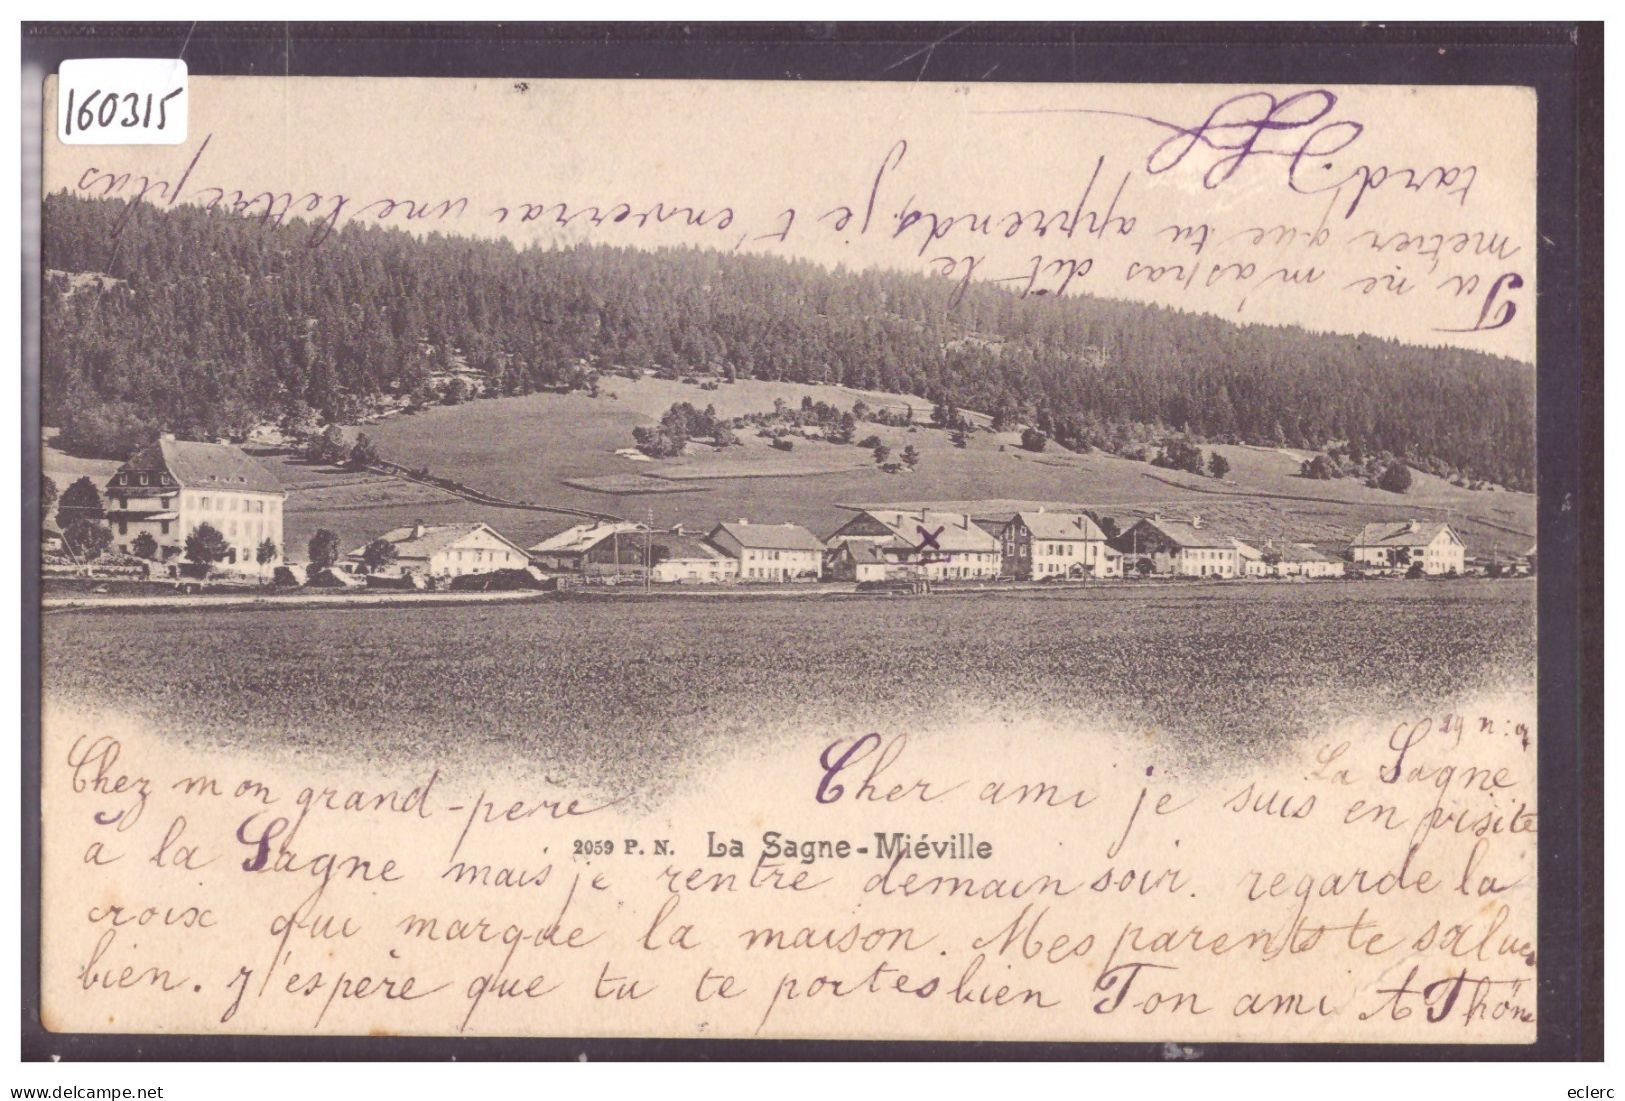 160315
Tu ne m'as pas dit le
métier que tu apprends, je t'enverrai une lettre plus
tard.
29 n:
La Sagne
Cher ami je suis en visite
Chez mon grand-père
2059 P. N. La Sagne-Miéville
à la Sagne mais je rentre demain soir. regarde la
croix qui marque la maison. Mes parents te saluent
bien. J'espère que tu te portes bien Ton ami A Thön
eclerc